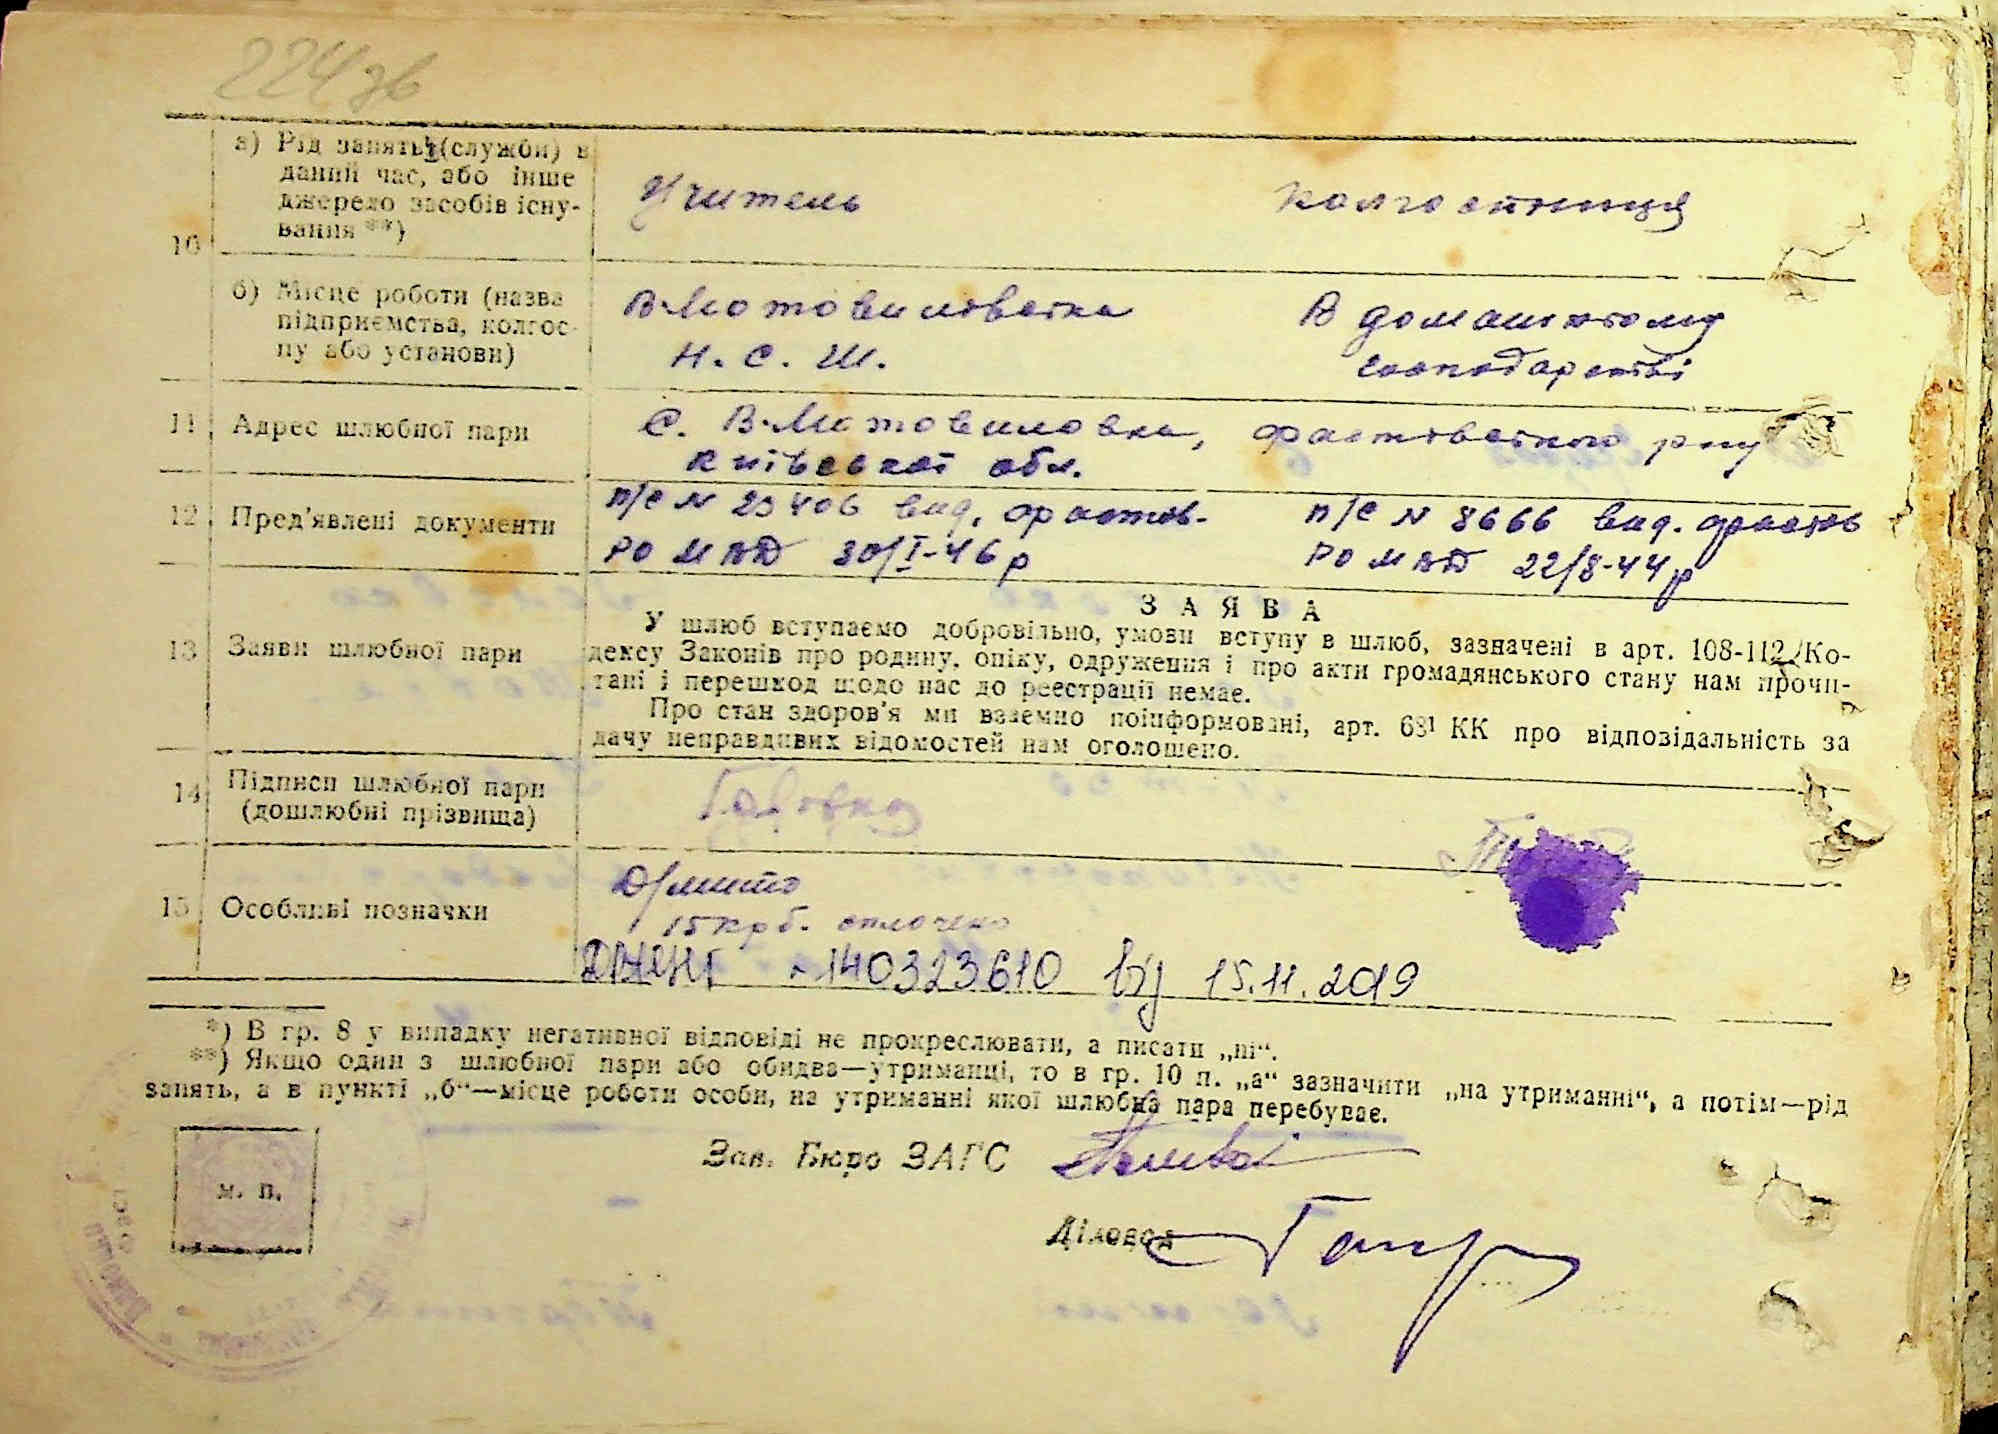 224 зв
10
а) Рід занять (служби) в
даний час, або інше
джерело засобів існу-
вання **)
Учитель
Колгоспниця
б) Місце роботи (назва
підприємства, колгос-
пу або установи)
В-Мотовилівська
Н. С. Ш.
В домашньому
господарстві
11
Адрес шлюбної пари
С. В-Мотовиловка, Фастівського р-ну
Київської обл.
12
Пред'явлені документи
п/с N 23406 вид. Фастів-
РО МВД 30/I-46 р
п/с N 8666 вид. Фастів
РО МВД 22/8-44 р
13
Заяви шлюбної пари
ЗАЯВА
У шлюб вступаємо добровільно, умови вступу в шлюб, зазначені в арт. 108-112 Ко-
дексу Законів про родину, опіку, одруження і про акти громадянського стану нам прочи-
тані і перешкод щодо нас до реєстрації немає.
Про стан здоров'я ми взаємно поінформовані, арт. 68¹ КК про відповідальність за
дачу неправдивих відомостей нам оголошено.
14
Підписи шлюбної пари
(дошлюбні прізвища)
15
Особливі позначки
Д/мито
15 крб. сплочено
140323610 від 15.11.2019
*) В гр. 8 у випадку негативної відповіді не прокреслювати, а писати „ні“.
**) Якщо один з шлюбної пари або обидва—утриманці, то в гр. 10 п. „а“ зазначити „на утриманні“, а потім—рід
занять, а в пункті „б“—місце роботи особи, на утриманні якої шлюбна пара перебуває.
м. п.
Зав. Бюро ЗАГС
Діловод